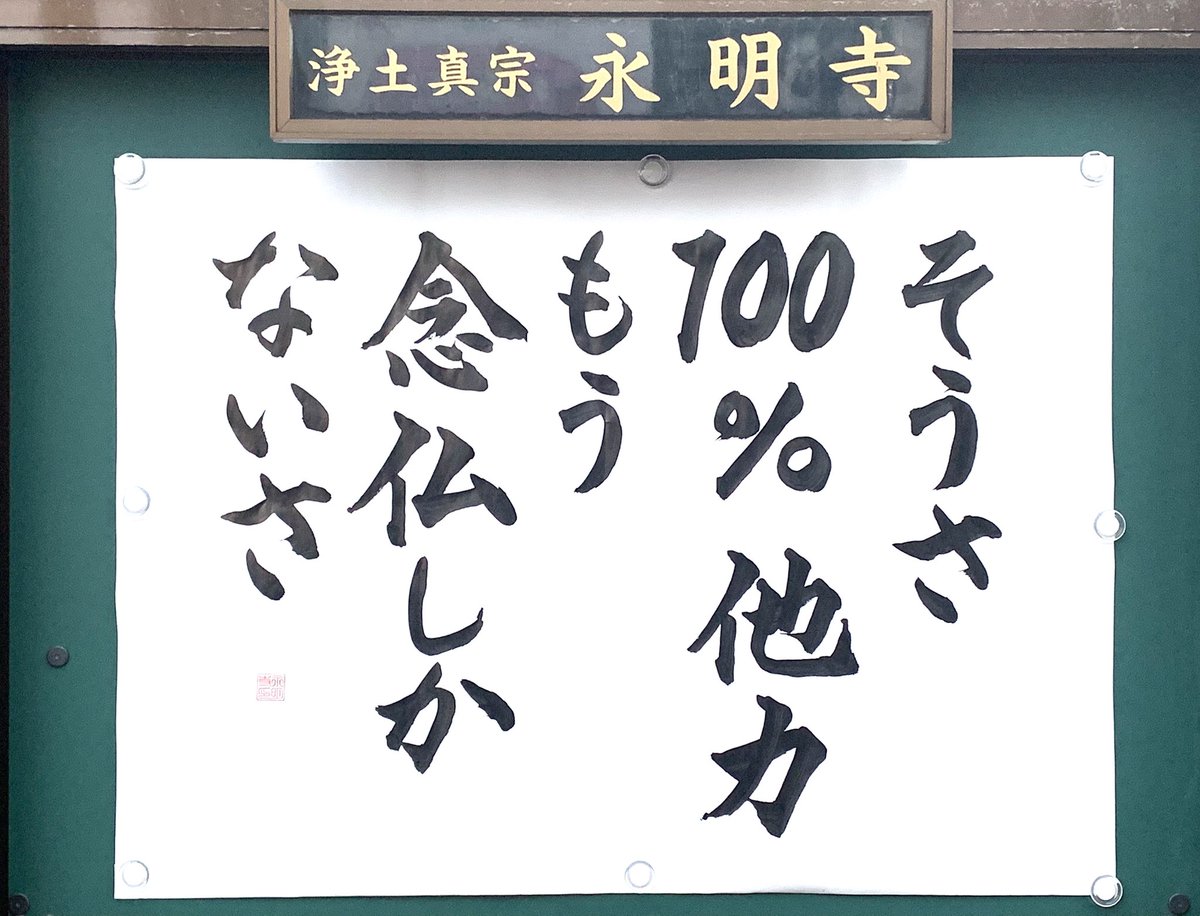 浄土真宗 永明寺
そうさ
100%他力
もう
念仏しか
ないさ